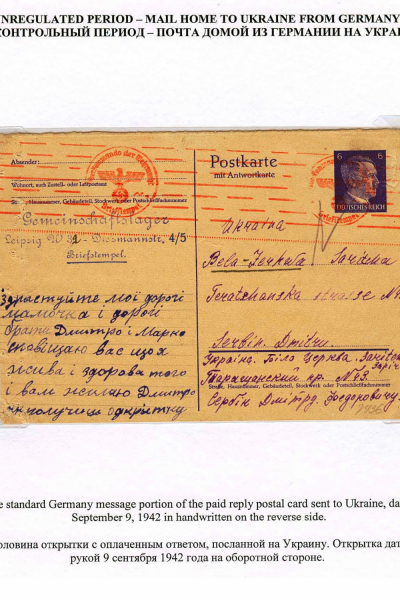 UNREGULATED PERIOD – MAIL HOME TO UKRAINE FROM GERMANY
КОНТРОЛЬНЫЙ ПЕРИОД – ПОЧТА ДОМОЙ ИЗ ГЕРМАНИИ НА УКРАИ
Absender:
Wohnort, auch Zustell- oder Leitpostamt
Straße, Hausnummer, Gebäudeteil, Stockwerk oder Postschließfachnummer
Gemeinschaftslager
Leipzig W 31 - Diesmannstr. 4/5
Briefstempel.
здраствуйте мої дорогі
мамочка і дорогі
брати Дмитро і Марко
сповіщаю вас що я
жива і здорова того
і вам желаю Дмитро
Postkarte
mit Antwortkarte
6 6
DEUTSCHES REICH
Ukraina
Bela-Zerkwa
Serbin Dmitru
Україна. Біло Церква.
Таращанский пр. № 43.
Straße, Hausnummer, Gebäudeteil, Stockwerk oder Postschließfachnummer
Сербін Дмітру Федоровичу
e standard Germany message portion of the paid reply postal card sent to Ukraine, da
September 9, 1942 in handwritten on the reverse side.
оловина открытки с оплаченным ответом, посланной на Украину. Открытка дат
рукой 9 сентября 1942 года на оборотной стороне.